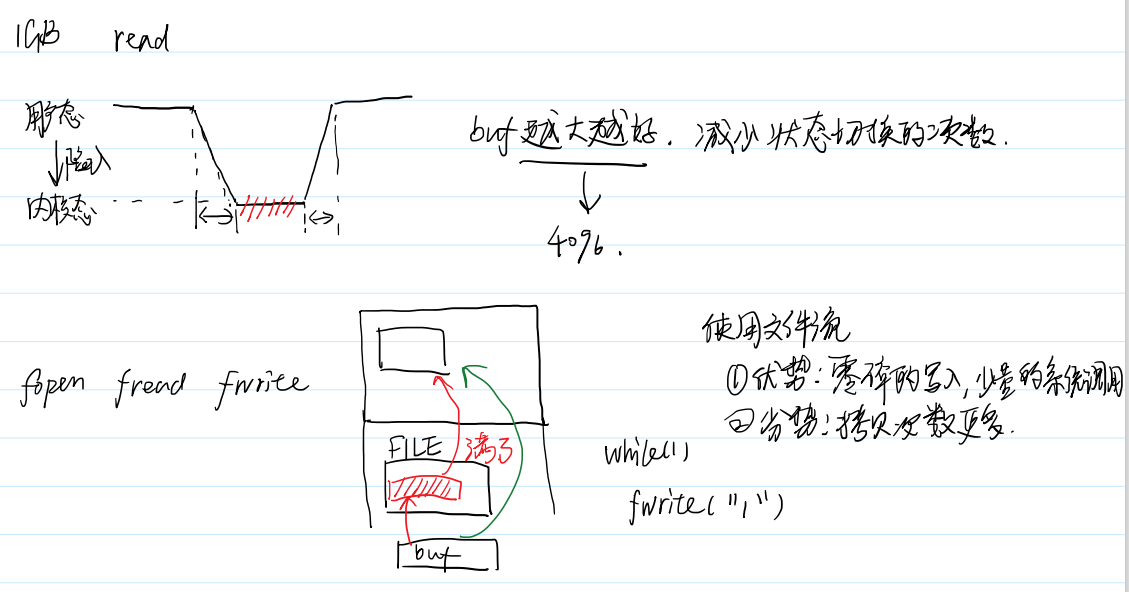 1GB read
用户态
陷入
内核态
buf越大越好. 减少状态切换的次数.
4096.
fopen fread fwrite
FILE
满了
buf
使用文件流
①优势:零碎的写入,少量的系统调用
②劣势:拷贝次数更多.
while(1)
fwrite("1")